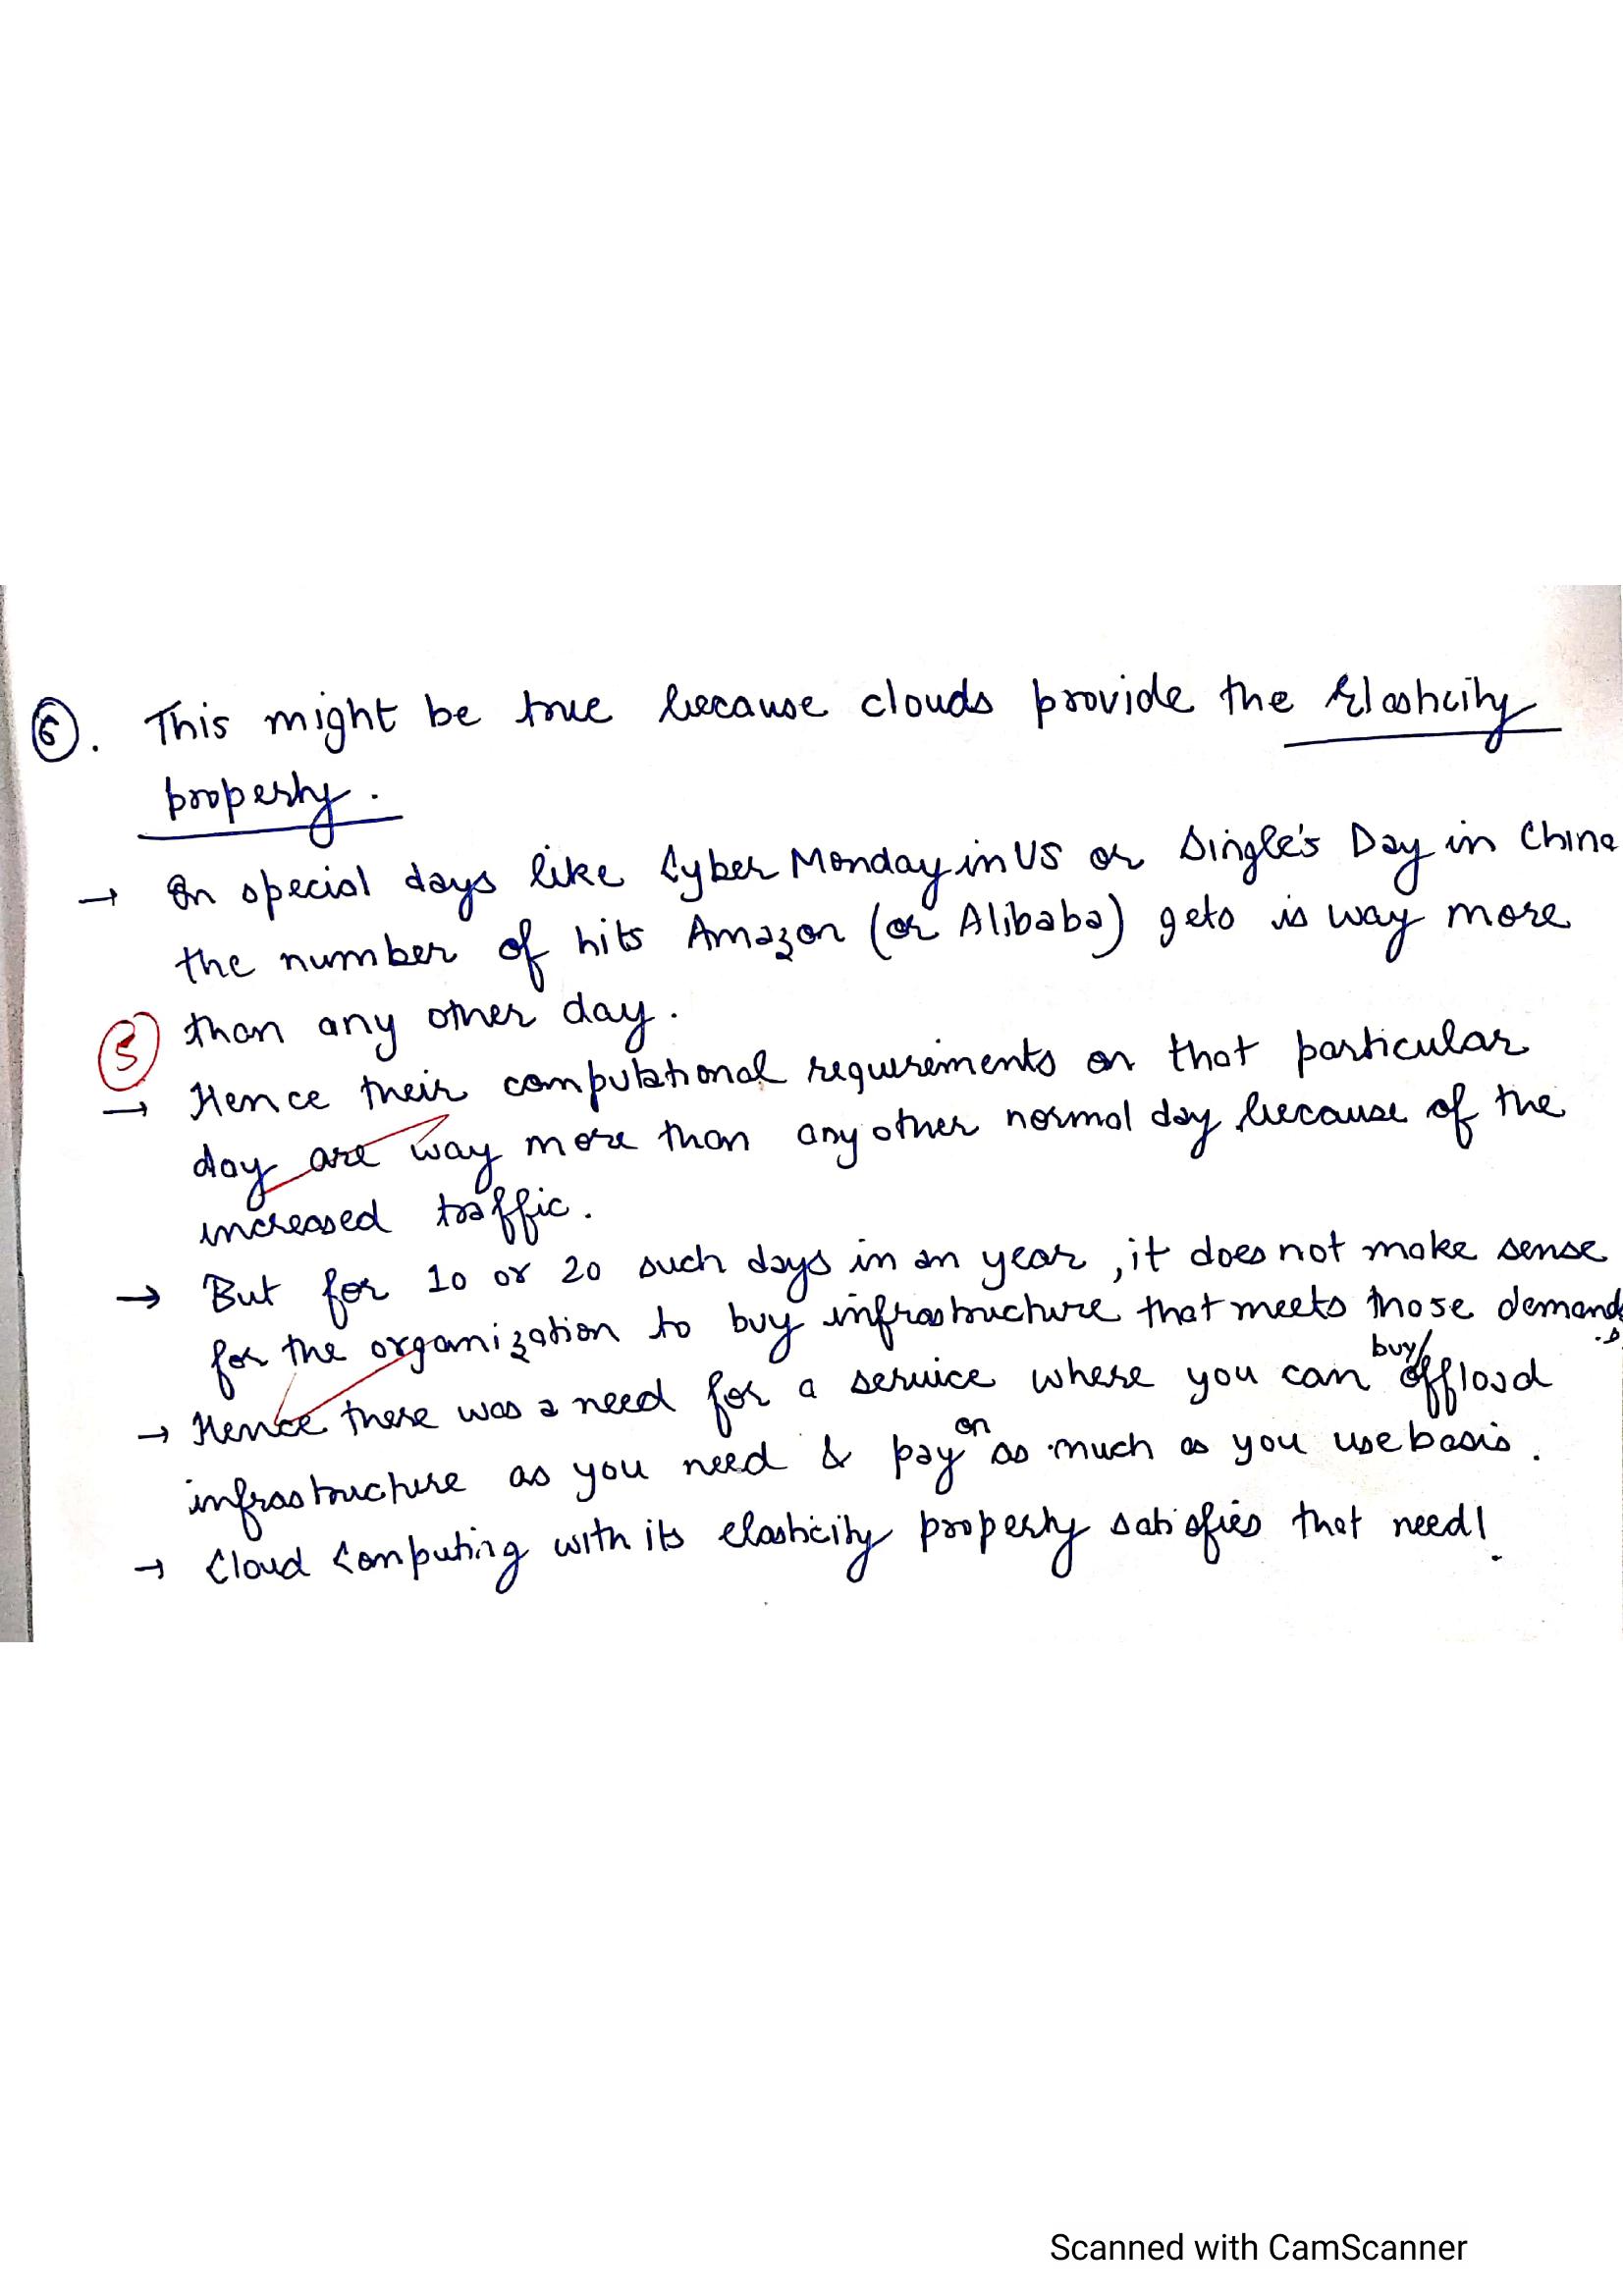 ⑥. This might be true because clouds provide the Elasticity
property.
→ On special days like Cyber Monday in US or Single's Day in China
the number of hits Amazon (or Alibaba) gets is way more
than any other day.
5
→ Hence their computational requirements on that particular
day are way more than any other normal day because of the
increased traffic.
→ But for 10 or 20 such days in an year, it does not make sense
for the organization to buy infrastructure that meets those demands.
→ Hence there was a need for a service where you can buy/offload
infrastructure as you need & pay on as much as you use basis.
→ Cloud Computing with its elasticity property satisfies that need!
Scanned with CamScanner